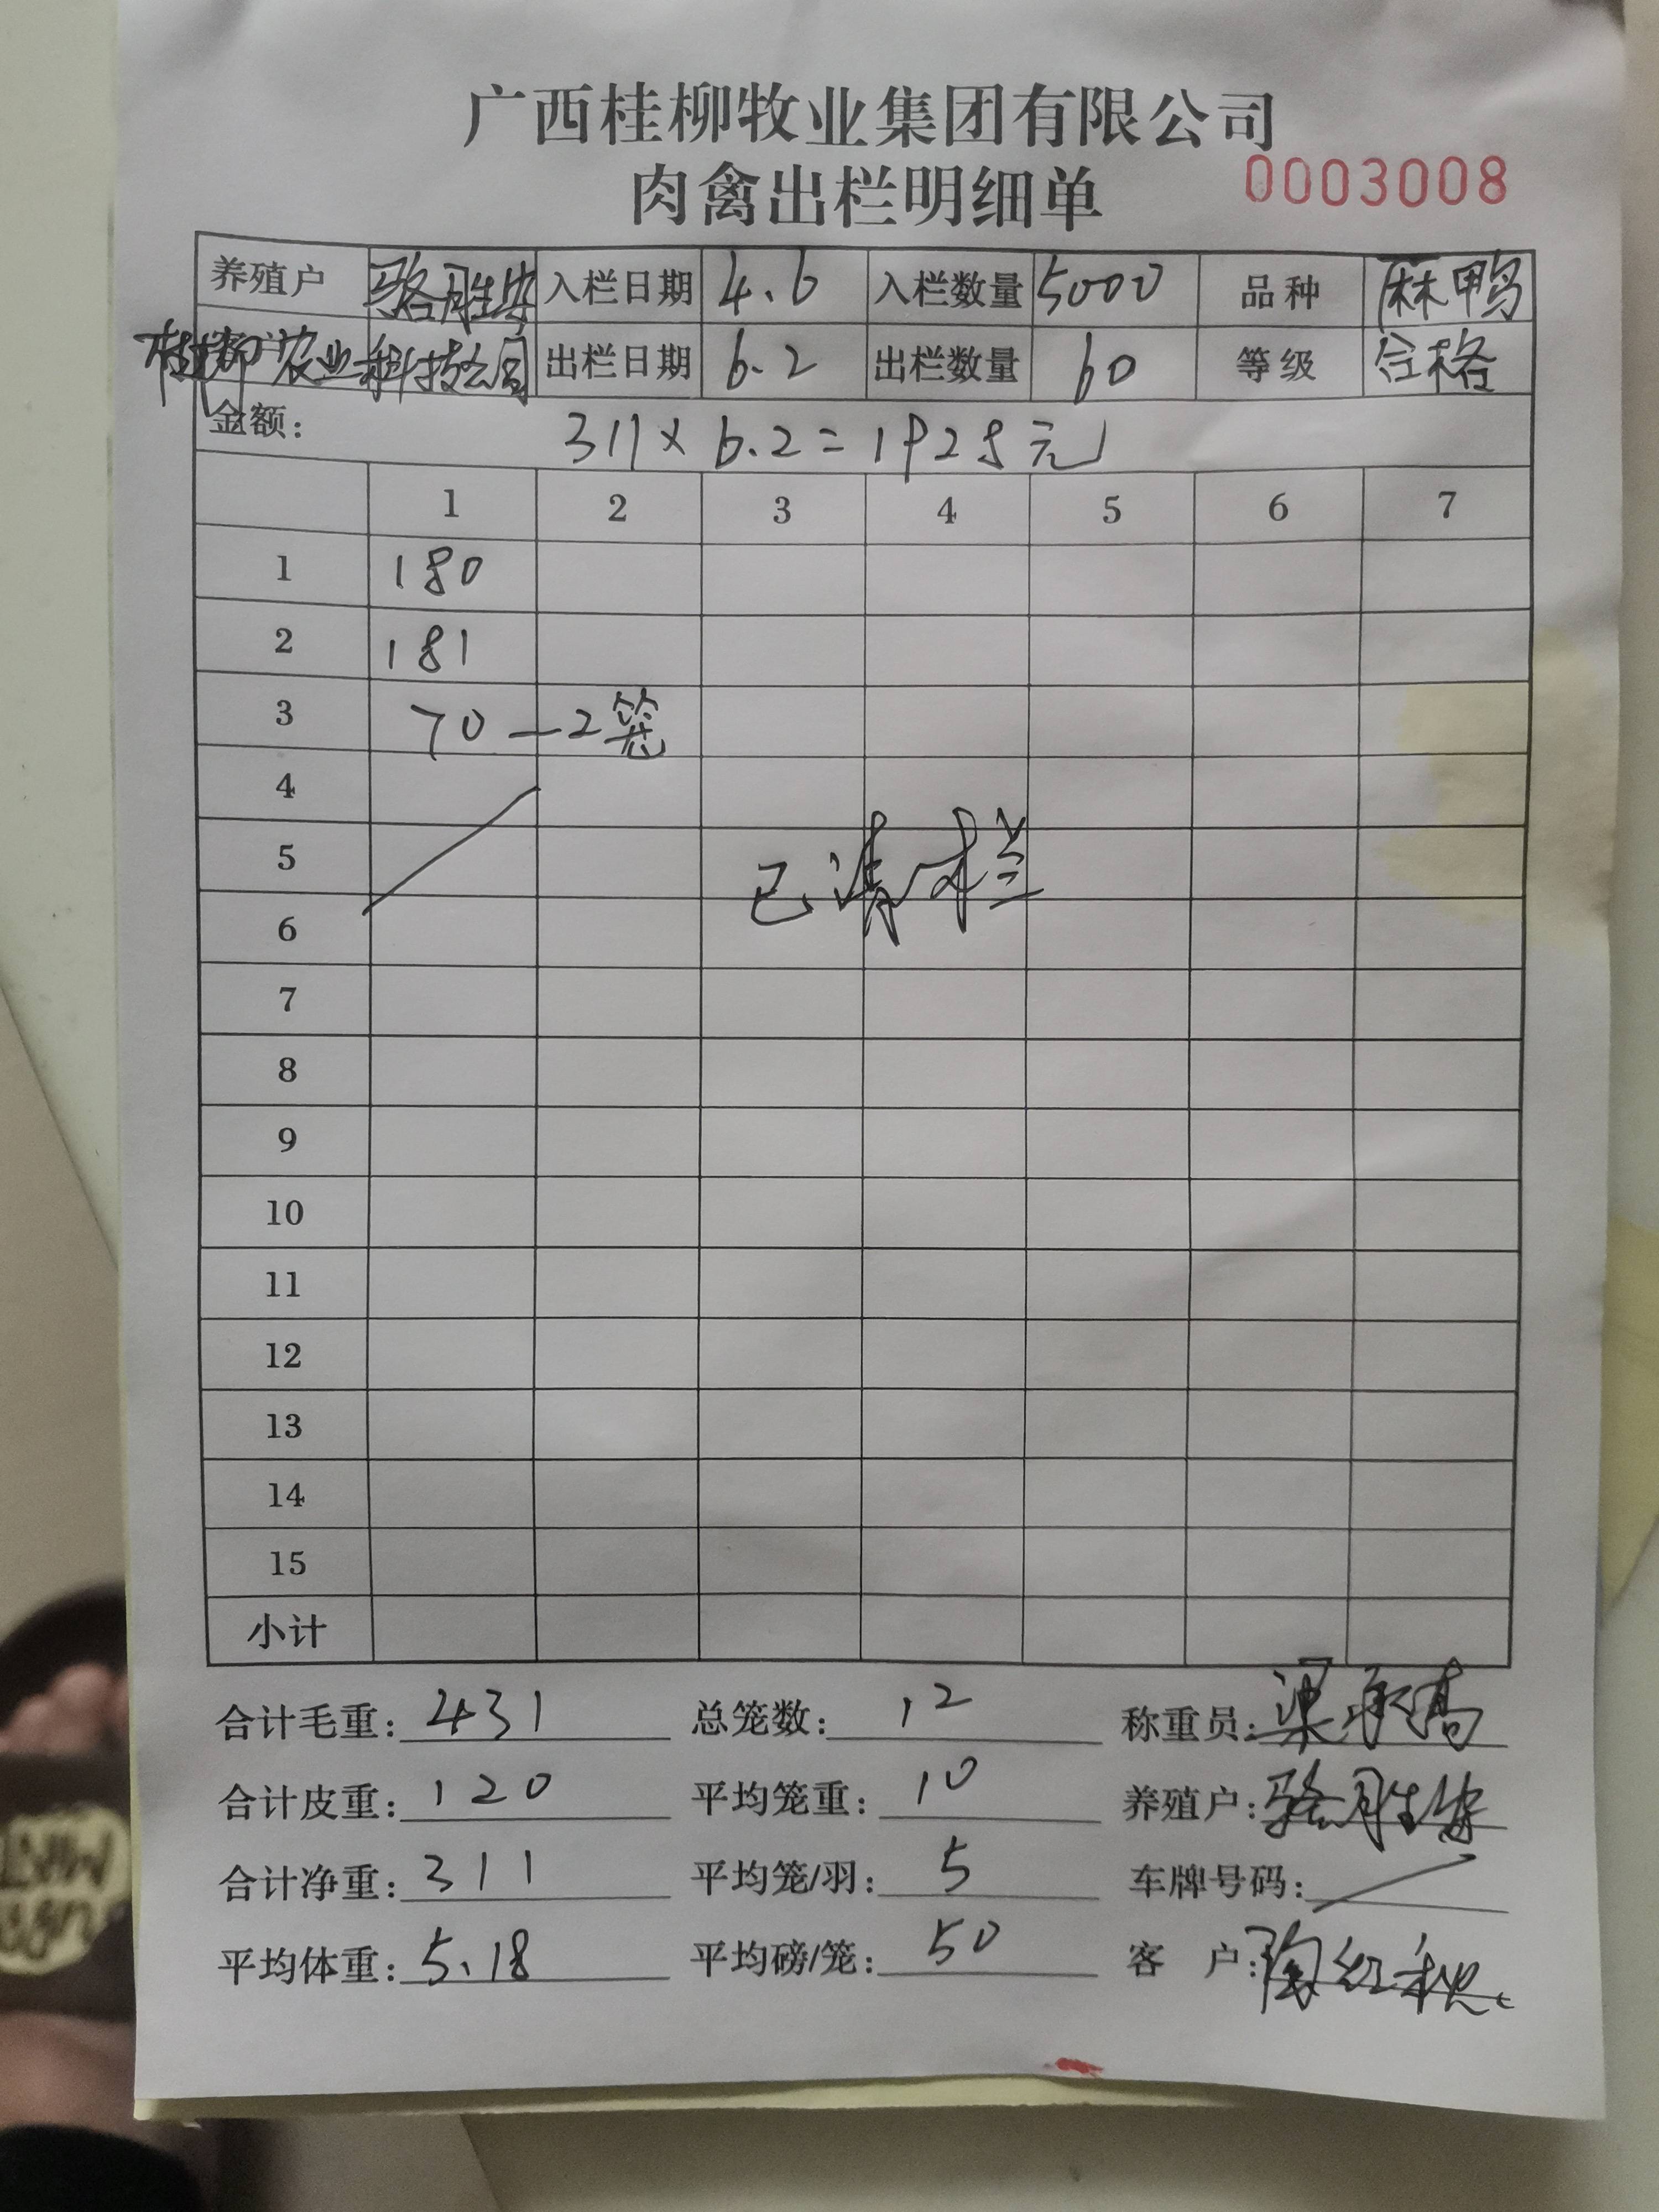 广西桂柳牧业集团有限公司
肉禽出栏明细单
0003008
养殖户 骆胜安 入栏日期 4.6 入栏数量 5000 品种 麻鸭
农业科技公司 出栏日期 6.2 出栏数量 60 等级 合格
金额: 311×6.2=1928元
1 2 3 4 5 6 7
1 180
2 181
3 70—2笼
4
5 已清栏
6
7
8
9
10
11
12
13
14
15
小计
合计毛重: 431 总笼数: 12 称重员:
合计皮重: 120 平均笼重: 10 养殖户: 骆胜安
合计净重: 311 平均笼/羽: 5 车牌号码:
平均体重: 5.18 平均磅/笼: 50 客 户: